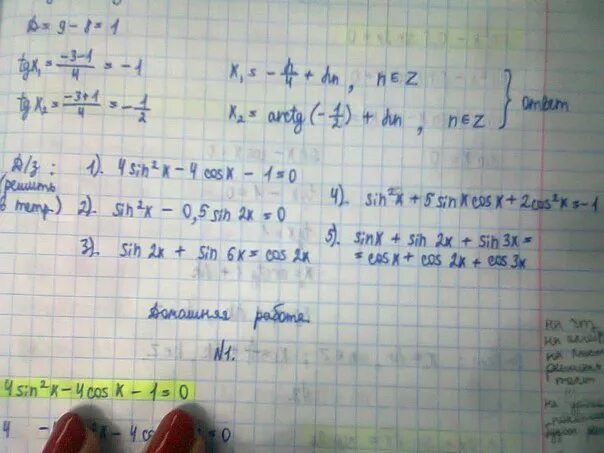 D = 9 - 8 = 1
tgx₁ = (-3-1)/4 = -1
x₁ = -π/4 + πn, n∈Z
tgx₂ = (-3+1)/4 = -1/2
x₂ = arctg(-1/2) + πn, n∈Z
ответ
Д/з: (решить в тетр.)
1). 4sin²x - 4cosx - 1 = 0
2). sin²x - 0,5sin2x = 0
3). sin2x + sin6x = cos2x
4). sin²x + 5sinxcosx + 2cos²x = -1
5). sinx + sin2x + sin3x =
= cosx + cos2x + cos3x
Домашняя работа.
N1.
4sin²x - 4cosx - 1 = 0